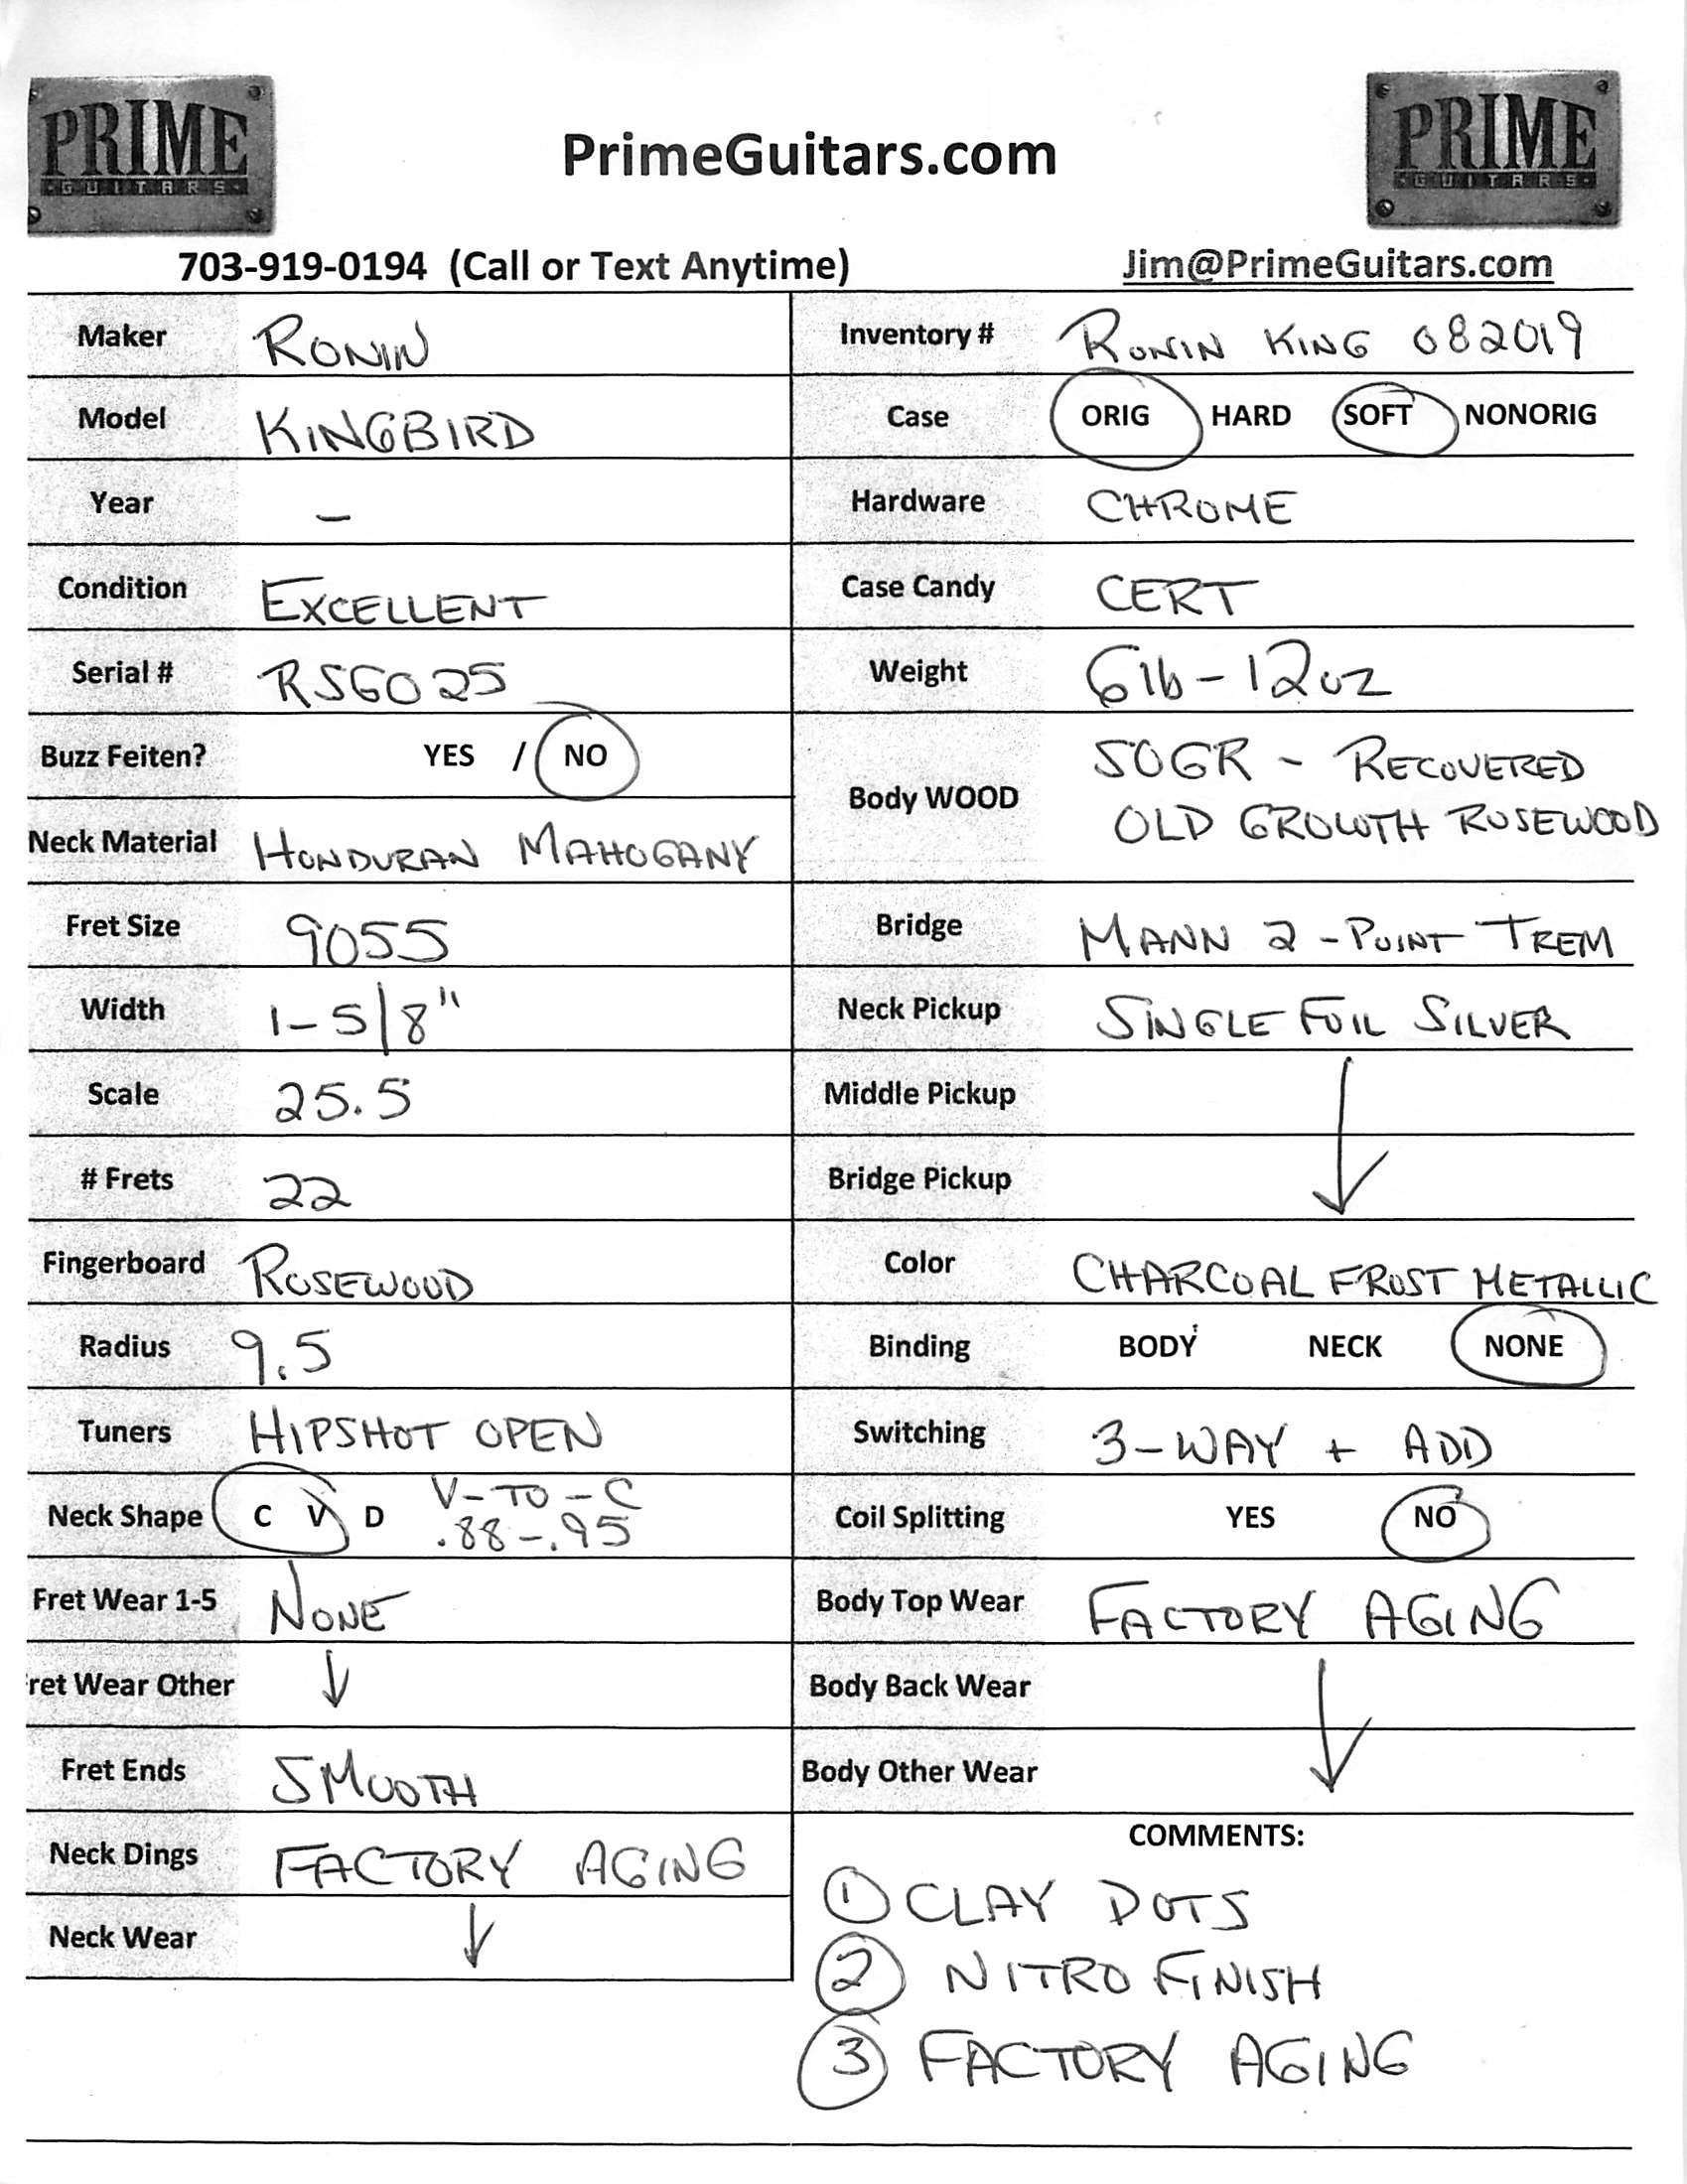 PRIME
GUITARS
PrimeGuitars.com
PRIME
GUITARS
703-919-0194 (Call or Text Anytime)
Jim@PrimeGuitars.com
Maker RONIN
Model KINGBIRD
Year –
Condition EXCELLENT
Serial # RSG025
Buzz Feiten? YES / NO
Neck Material HONDURAN MAHOGANY
Fret Size 9055
Width 1-5/8"
Scale 25.5
# Frets 22
Fingerboard ROSEWOOD
Radius 9.5
Tuners HIPSHOT OPEN
Neck Shape C V D V-TO-C
.88-.95
Fret Wear 1-5 NONE
ret Wear Other ↓
Fret Ends SMOOTH
Neck Dings FACTORY AGING
Neck Wear ↓
Inventory # RONIN KING 082019
Case ORIG HARD SOFT NONORIG
Hardware CHROME
Case Candy CERT
Weight 6lb-12oz
Body WOOD SOGR - RECOVERED
OLD GROWTH ROSEWOOD
Bridge MANN 2-POINT TREM
Neck Pickup SINGLE FOIL SILVER
Middle Pickup ↓
Bridge Pickup
Color CHARCOAL FROST METALLIC
Binding BODY NECK NONE
Switching 3-WAY + ADD
Coil Splitting YES NO
Body Top Wear FACTORY AGING
Body Back Wear ↓
Body Other Wear
COMMENTS:
① CLAY DOTS
② NITRO FINISH
③ FACTORY AGING